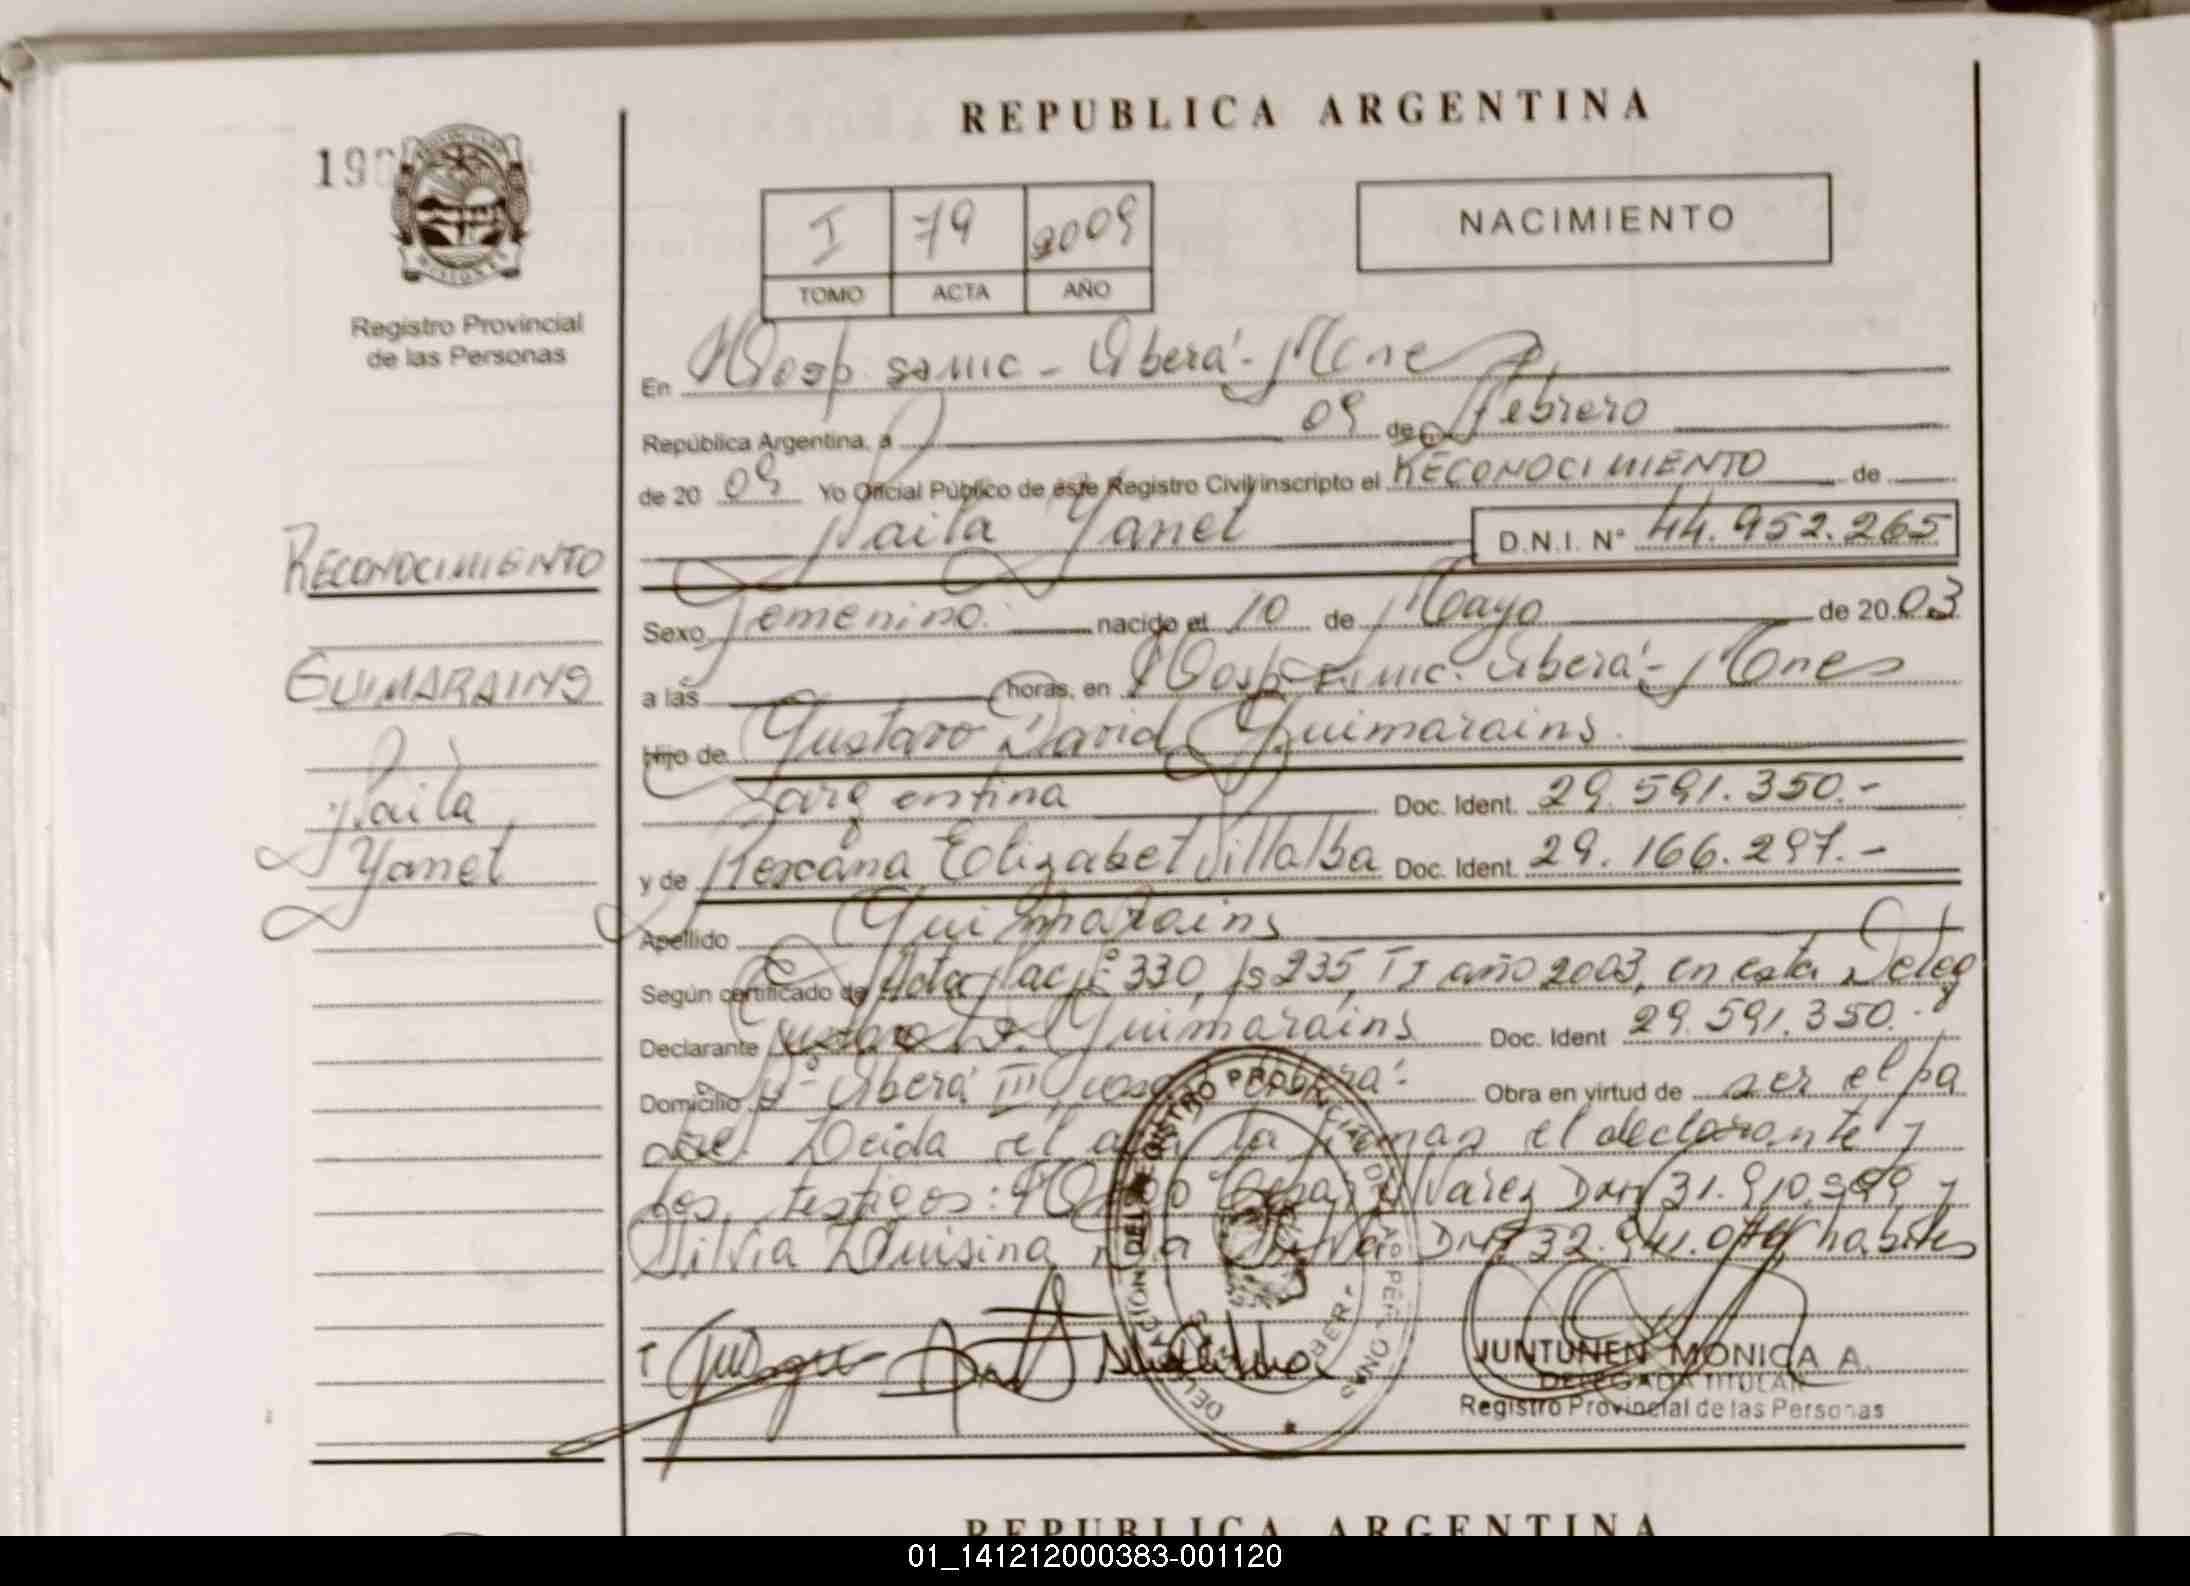 REPUBLICA ARGENTINA
NACIMIENTO
I 79 2009
TOMO ACTA AÑO
Registro Provincial
de las Personas
En Hosp. samic - Oberá - Mnes
República Argentina, a 09 de Febrero
de 20 09 Yo Oficial Público de este Registro Civil inscripto el RECONOCIMIENTO de
Naila Yanel D.N.I. N° 44.952.265
RECONOCIMIENTO
GUIMARAINS
Naila
Yanel
Sexo Femenino. nacido el 10 de Mayo de 20 03
a las horas, en Hosp. samic. Oberá - Mones
Hijo de Gustavo David Guimarains.
argentina Doc. Ident. 29.591.350.-
y de Roxana Elizabet Villalba Doc. Ident. 29.166.297.-
Apellido Guimarains
Según certificado de Acta Nac N° 330, Fs 235, T I año 2003, en esta Deleg
Declarante Gustavo D. Guimarains Doc. Ident 29.591.350.-
Domicilio Oberá III Oberá. Obra en virtud de ser el pa
dre. Leida el la firman el declarante y
los testigos: Alvarez DNI 31.910. y
Silvia Luisina Da Silva DNI 32.941. habiles
DELEGACION DEL REGISTRO PROVINCIAL DE LAS PERSONAS
JUNTUNEN MONICA A.
DELEGADA TITULAR
Registro Provincial de las Personas
REPUBLICA ARGENTINA
01_141212000383-001120